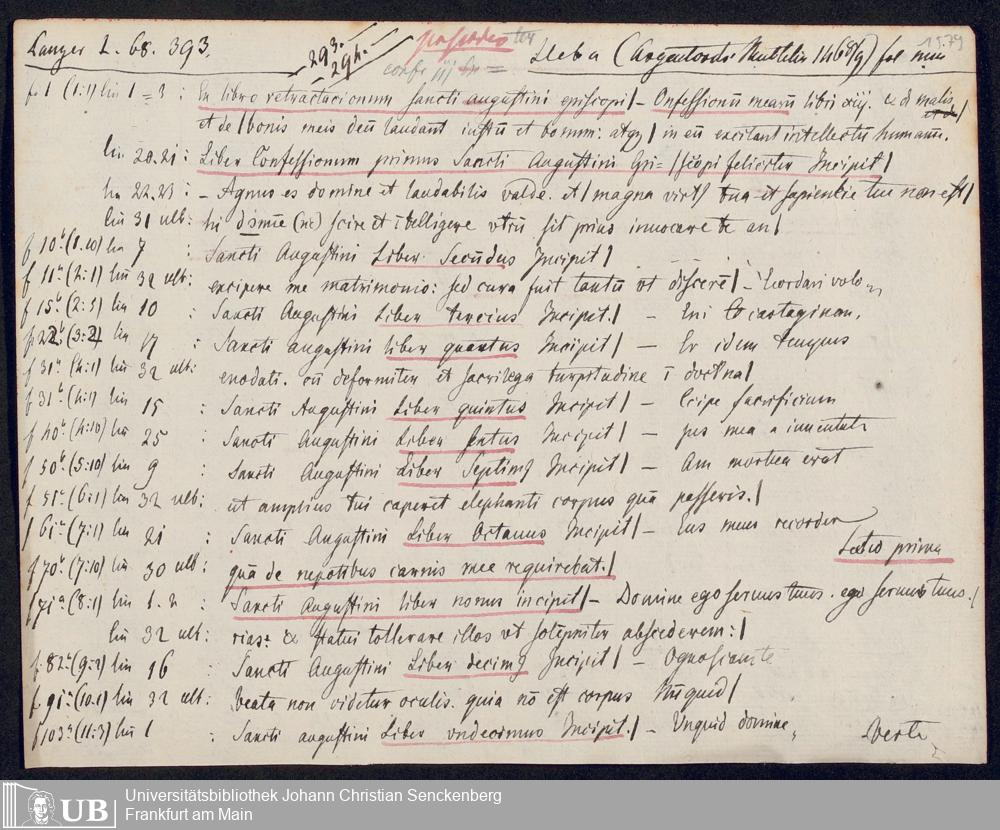 Langer 2. 68. 393.
293.
294.
1579
(Argentorat: Mentelin 1468/9) fol min
f. 1 (1:1) lin 1-3 : In libro retractacionum sancti augustini episcopi | - Confessionū mearū libri xiij. & d malis
et de | bonis meis deū laudant iustū et bonum: atqz | in eū excitant intellectū humanū.
lin. 20.21 : Liber Confessionum primus Sancti Augustini Epi= | scopi feliciter Incipit |
lin 22.23 : - Agnus es domine et laudabilis valde. et | magna virt9 tua et sapiencie tue non est |
lin 31 ult: hi domine (sic) scire et ītelligere vtrū sit prius innocare te an |
f 10b (1:10) lin 7 : Sancti Augustini Liber Secūdus Incipit |
f 11a (2:1) lin 32 ult: excipere me matrimonio: sed cura fuit tantū vt discerē | - Ecordari volo
f 15b (2:5) lin 10 : Sancti Augustini Liber tercius Incipit. | - Eni Cartaginem.
f 22b (3:2) lin 17 : Sancti augustini liber quartus Incipit | - Er idem tempus
f 31a (4:1) lin 32 ult: enodati. cū deformiter et sacrilega turpitudine ī doctrina |
f 31b (4:1) lin 15 : Sancti Augustini Liber quintus Incipit | - Ccipe sacrificium
f 40b (4:10) lin 25 : Sancti Augustini Liber sextus Incipit | - pes mea a iuuentute
f 50b (5:10) lin 9 : Sancti Augustini Liber Septim9 Incipit | - Am mortua erat
f 51a (6:1) lin 32 ult: ut amplius tui caperet elephanti corpus quā passeris. |
f 61a (7:1) lin 21 : Sancti Augustini Liber Octauus Incipit | - Eus meus recorder
Lectio prima
f 70b (7:10) lin 30 ult: quā de nepotibus carnis mee requirebat. |
f 71a (8:1) lin 1.2 : Sancti Augustini liber nonus incipit | - Domine ego seruus tuus. ego seruus tuus: |
lin 32 ult: rias: & statui tollerare illos vt solēpniter abscederem: |
f. 82a (9:2) lin 16 : Sancti Augustini Liber decim9 Incipit | - Ognoscam te
f. 91a (10:1) lin 32 ult: beata non videtur oculis. quia nō est corpus Nūquid |
f 103a (11:3) lin 1 : Sancti augustini Liber vndecimus Incipit. | - Vnquid domine
Verte
UB
Universitätsbibliothek Johann Christian Senckenberg
Frankfurt am Main